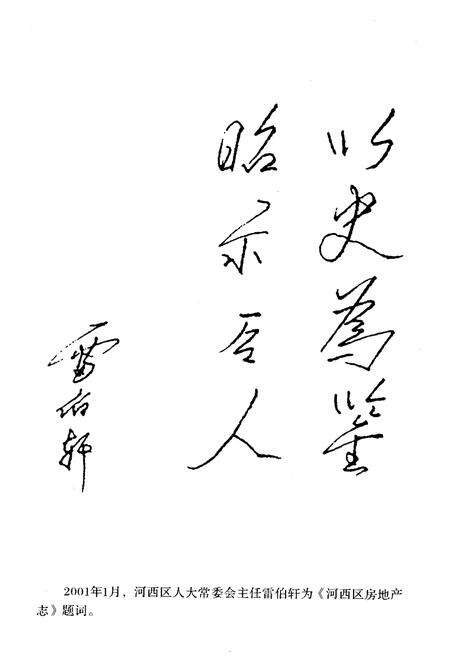 以史為鉴
昭示后人
雷伯轩
2001年1月，河西区人大常委会主任雷伯轩为《河西区房地产
志》题词。